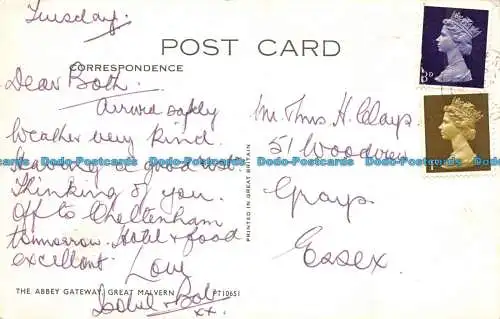 Tuesday.
POST CARD
CORRESPONDENCE
Dear Both.
Arrived safely
Weather very kind.
Having a good rest.
Thinking of you.
Off to Cheltenham
tomorrow. Hotel & food
excellent.
Love
Isobel & Bob
xx.
THE ABBEY GATEWAY, GREAT MALVERN PT10651
PRINTED IN GREAT BRITAIN
Mr. Thos. H. Clays.
51 Woodview
Grays.
Essex.
Dodo-Postcards Dodo-Postcards Dodo-Postcards Dodo-Postcards Dodo-Postcards